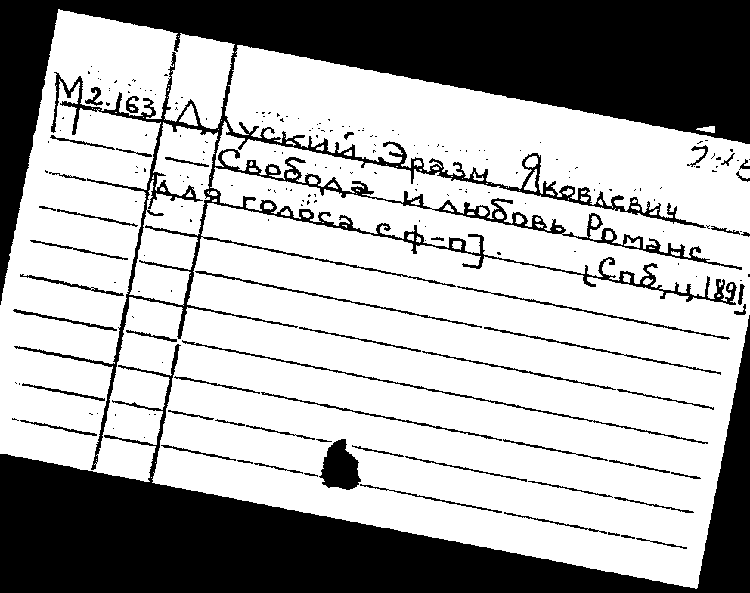 М2.163 Длуский, Эразм Яковлевич
Свобода и любовь. Романс
[для голоса с ф-п].
[Спб., ц. 1891]